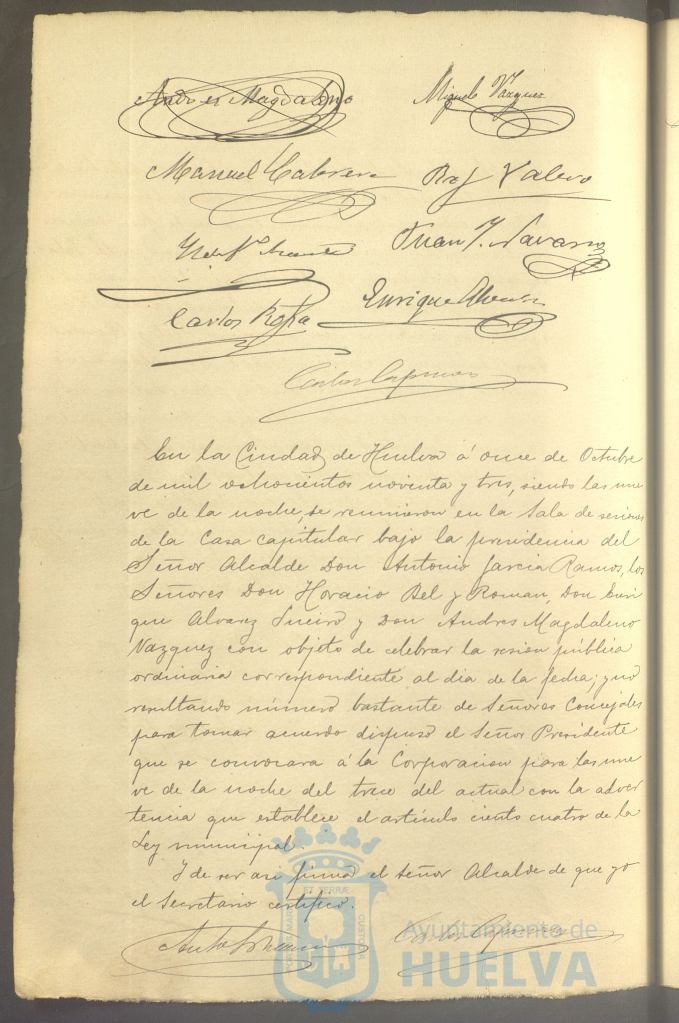 Andres Magdaleno
Miguel Vazquez
Manuel Cabrera
Valero
Juan J. Navarro
Enrique Alvarez
Carlos
Carlos
En la Ciudad de Huelva á once de Octubre
de mil ochocientos noventa y tres, siendo las nue
ve de la noche, se reunieron en la Sala de sesiones
de la Casa capitular bajo la presidencia del
Señor Alcalde Don Antonio Garcia Ramos, los
Señores Don Horacio Bel y Roman, Don Enri
que Alvarez Sneiro y Don Andres Magdaleno
Vazquez con objeto de celebrar la sesion pública
ordinaria correspondiente al dia de la fecha; y no
resultando número bastante de Señores Concejales
para tomar acuerdo dispuso el Señor Presidente
que se convocara á la Corporacion para las nue
ve de la noche del trece del actual con la adver
tencia que establece el artículo ciento cuatro de la
Ley municipal.
Y de ser asi firma el Señor Alcalde de que yo
el Secretario certifico.
Ayuntamiento de
HUELVA